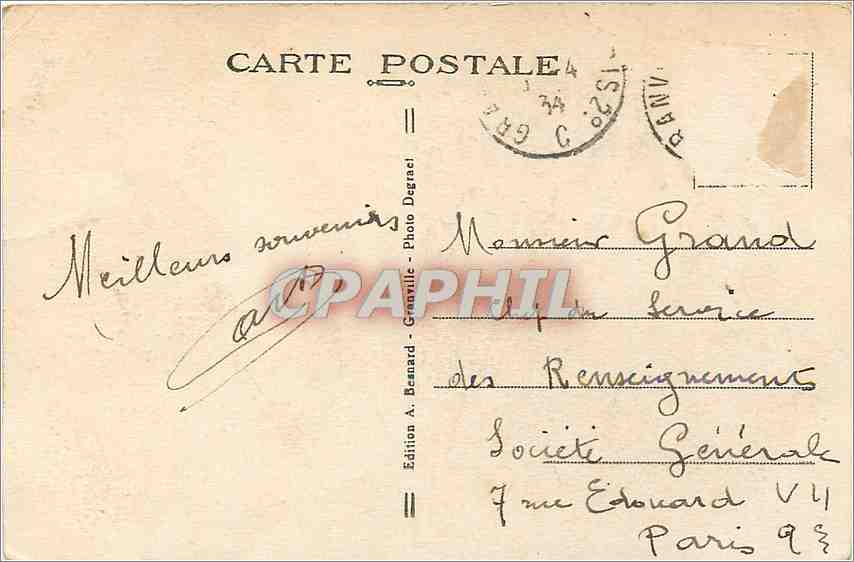 CARTE POSTALE
4
34
IS 2º
GRA
RANV
Meilleurs souvenirs
Edition A. Besnard - Granville - Photo Degrael
CPAPHIL
Monsieur Grand
Chef du Service
des Renseignements
Société Générale
7 rue Edouard VII
Paris 9e